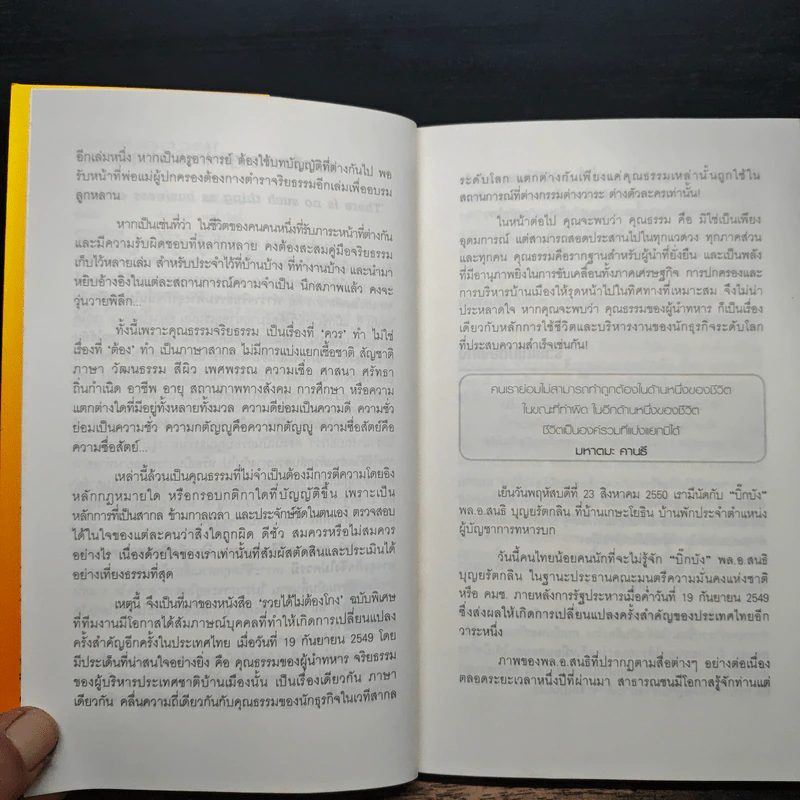 อีกเล่มหนึ่ง หากเป็นครูอาจารย์ ต้องใช้บทบัญญัติที่ต่างกันไป พอ
รับหน้าที่พ่อแม่ผู้ปกครองต้องกางตำราจริยธรรมอีกเล่มเพื่ออบรม
ลูกหลาน
หากเป็นเช่นที่ว่า ในชีวิตของคนคนหนึ่งที่รับภาระหน้าที่ต่างกัน
และมีความรับผิดชอบที่หลากหลาย คงต้องสะสมคู่มือจริยธรรม
เก็บไว้หลายเล่ม สำหรับประจำไว้ที่บ้านบ้าง ที่ทำงานบ้าง และนำมา
หยิบอ้างอิงในแต่ละสถานการณ์ความจำเป็น นึกสภาพแล้ว คงจะ
วุ่นวายพิลึก...
ทั้งนี้เพราะคุณธรรมจริยธรรม เป็นเรื่องที่ ‘ควร’ ทำ ไม่ใช่
เรื่องที่ ‘ต้อง’ ทำ เป็นภาษาสากล ไม่มีการแบ่งแยกเชื้อชาติ สัญชาติ
ภาษา วัฒนธรรม สีผิว เพศพรรณ ความเชื่อ ศาสนา ศรัทธา
ถิ่นกำเนิด อาชีพ อายุ สถานภาพทางสังคม การศึกษา หรือความ
แตกต่างใดที่มีอยู่ทั้งหลายทั้งมวล ความดีย่อมเป็นความดี ความชั่ว
ย่อมเป็นความชั่ว ความกตัญญูคือความกตัญญู ความซื่อสัตย์คือ
ความซื่อสัตย์...
เหล่านี้ล้วนเป็นคุณธรรมที่ไม่จำเป็นต้องมีการตีความโดยอิง
หลักกฎหมายใด หรือกรอบกติกาใดที่บัญญัติขึ้น เพราะเป็น
หลักการที่เป็นสากล ข้ามกาลเวลา และประจักษ์ชัดในตนเอง ตรวจสอบ
ได้ในใจของแต่ละคนว่าสิ่งใดถูกผิด ดีชั่ว สมควรหรือไม่สมควร
อย่างไร เนื่องด้วยใจของเราเท่านั้นที่สัมผัสตัดสินและประเมินได้
อย่างเที่ยงธรรมที่สุด
เหตุนี้ จึงเป็นที่มาของหนังสือ ‘รวยได้ไม่ต้องโกง’ ฉบับพิเศษ
ที่ทีมงานมีโอกาสได้สัมภาษณ์บุคคลที่ทำให้เกิดการเปลี่ยนแปลง
ครั้งสำคัญอีกครั้งในประเทศไทย เมื่อวันที่ 19 กันยายน 2549 โดย
มีประเด็นที่น่าสนใจอย่างยิ่ง คือ คุณธรรมของผู้นำทหาร จริยธรรม
ของผู้บริหารประเทศชาติบ้านเมืองนั้น เป็นเรื่องเดียวกัน ภาษา
เดียวกัน คลื่นความถี่เดียวกันกับคุณธรรมของนักธุรกิจในเวทีสากล
ระดับโลก แตกต่างกันเพียงแค่คุณธรรมเหล่านั้นถูกใช้ใน
สถานการณ์ที่ต่างกรรมต่างวาระ ต่างตัวละครเท่านั้น!
ในหน้าต่อไป คุณจะพบว่า คุณธรรม คือ มิใช่เป็นเพียง
อุดมการณ์ แต่สามารถสอดประสานไปในทุกแวดวง ทุกภาคส่วน
และทุกคน คุณธรรมคือรากฐานสำหรับผู้นำที่ยั่งยืน และเป็นพลัง
ที่มีอานุภาพยิ่งในการขับเคลื่อนทั้งภาคเศรษฐกิจ การปกครองและ
การบริหารบ้านเมืองให้รุดหน้าไปในทิศทางที่เหมาะสม จึงไม่น่า
ประหลาดใจ หากคุณจะพบว่า คุณธรรมของผู้นำทหาร ก็เป็นเรื่อง
เดียวกับหลักการใช้ชีวิตและบริหารงานของนักธุรกิจระดับโลก
ที่ประสบความสำเร็จเช่นกัน!
คนเราย่อมไม่สามารถทำถูกต้องในด้านหนึ่งของชีวิต
ในขณะที่ทำผิด ในอีกด้านหนึ่งของชีวิต
ชีวิตเป็นองค์รวมที่แบ่งแยกมิได้
มหาตมะ คานธี
เย็นวันพฤหัสบดีที่ 23 สิงหาคม 2550 เรามีนัดกับ “บิ๊กบัง”
พล.อ.สนธิ บุญยรัตกลิน ที่บ้านเกษะโกมล บ้านพักประจำตำแหน่ง
ผู้บัญชาการทหารบก
วันนี้คนไทยน้อยคนนักที่จะไม่รู้จัก “บิ๊กบัง” พล.อ.สนธิ
บุญยรัตกลิน ในฐานะประธานคณะมนตรีความมั่นคงแห่งชาติ
หรือ คมช. ภายหลังการรัฐประหารเมื่อค่ำวันที่ 19 กันยายน 2549
ซึ่งส่งผลให้เกิดการเปลี่ยนแปลงครั้งสำคัญของประเทศไทยอีก
วาระหนึ่ง
ภาพของพล.อ.สนธิที่ปรากฏตามสื่อต่างๆ อย่างต่อเนื่อง
ตลอดระยะเวลาหนึ่งปีที่ผ่านมา สาธารณชนมีโอกาสรู้จักท่านแต่